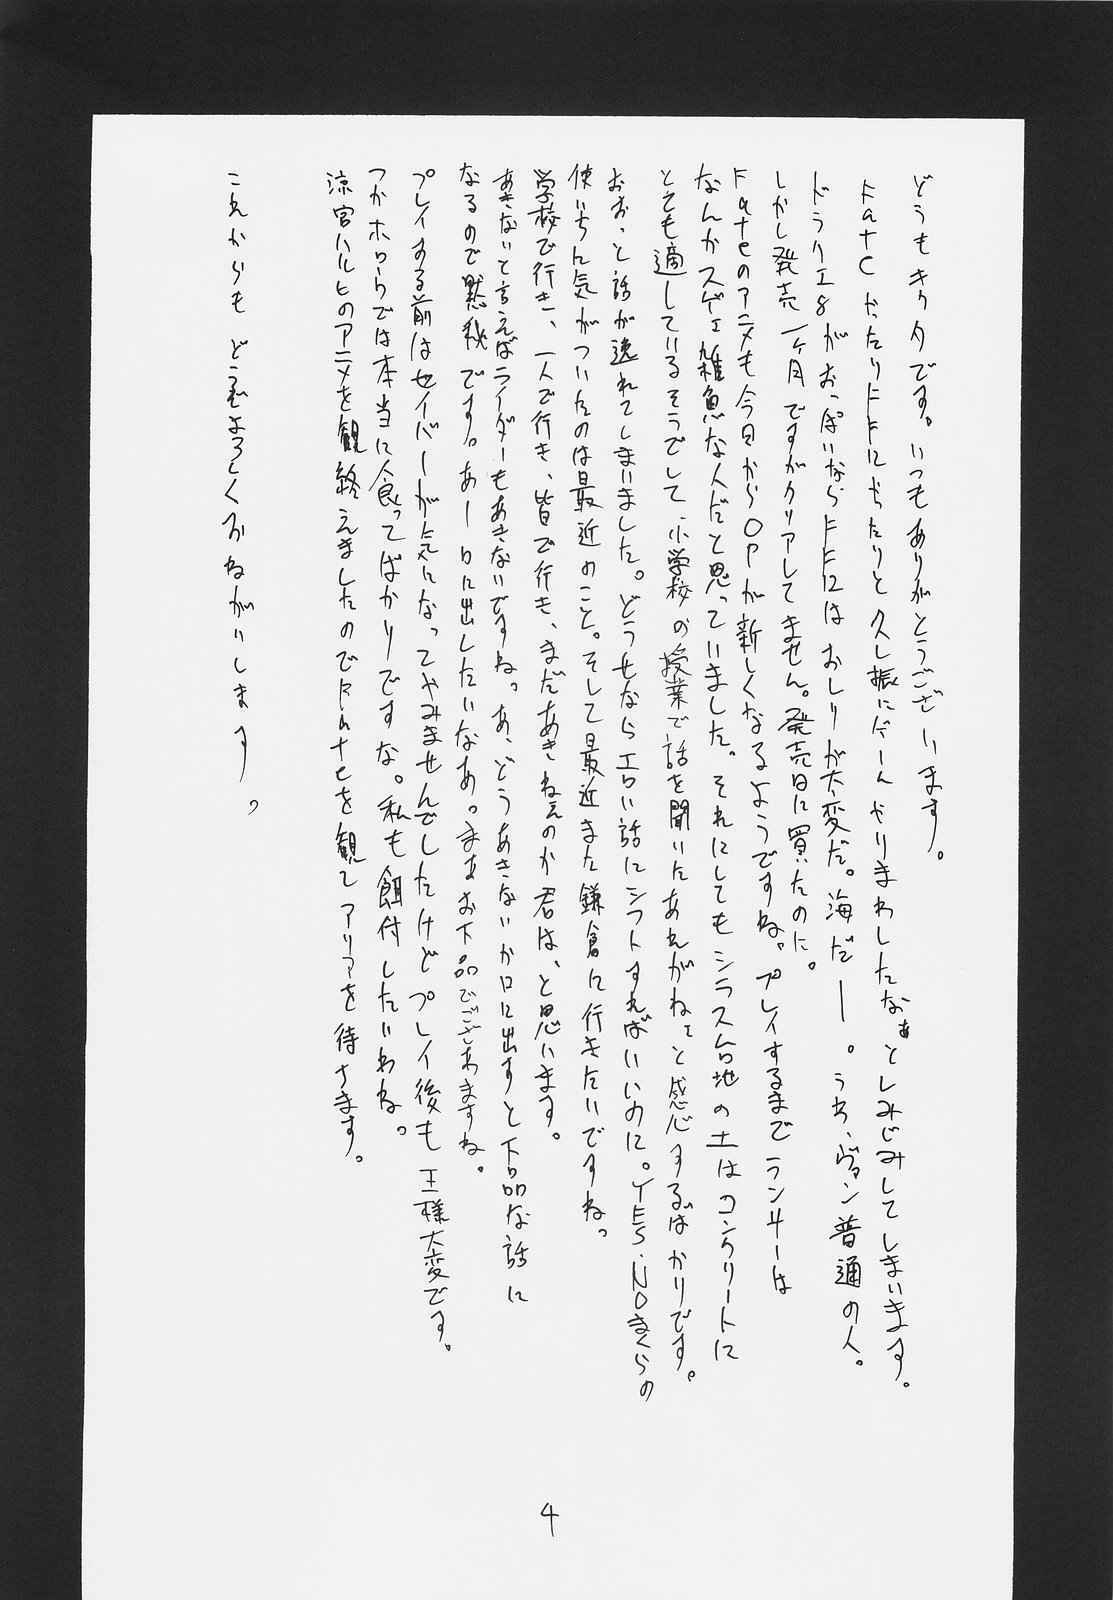 どうもキクタです。いつもありがとうございます。
Fateやったり FFにやったりと久し振りにゲームやりまわしたなぁとしみじみしてしまいます。
ドラクエ8がおっぱいならFF12はおしりが大変だ。海だー。うわ、ヴァン普通の人。
しかし発売一ヶ月ですがクリアしてません。発売日に買ったのに。
Fateのアニメも今日からOPが新しくなるようですね。プレイするまでランサーは
なんかスゲェ雑魚な人だと思っていました。それにしてもシラス台地の土はコンクリートに
とても適しているそうでして、小学校の授業で話を聞いたあれがねぇと感心するばかりです。
おおっと話が逸れてしまいました。どうせならエロい話にシフトすればいいのに。YES・NOまくらの
使いみちに気がついたのは最近のこと。そして最近また鎌倉に行きたいですね。
学校で行き、一人で行き、皆で行き、まだあきねぇのか君は、と思います。
あきないと言えばライダーもあきないですね。あ、どうあきないか口に出すと下品な話に
なるので黙秘です。あー口に出したいなあ。まあお下品でございますね。
プレイする前はセイバーが気になってやみませんでしたけどプレイ後も王様大変です。
つかホロウでは本当に食ってばかりですな。私も餌付したいわね。
涼宮ハルヒのアニメを観終えましたのでFateを観てアリアを待ちます。
これからもどうぞよろしくおねがいします。
4